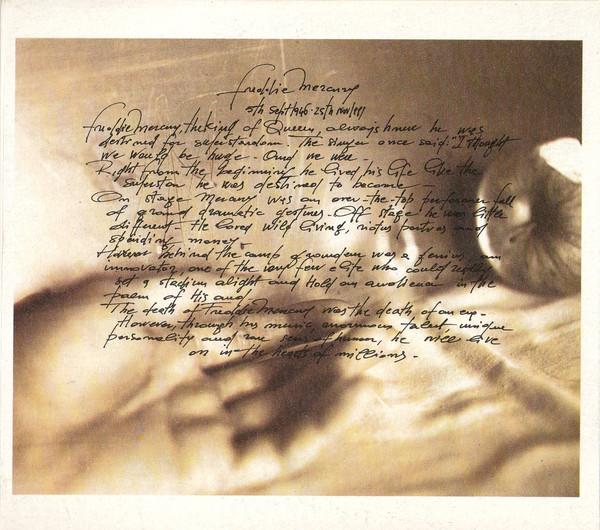 Freddie Mercury
5th Sept 1946 - 25th Nov 1991
Freddie Mercury, the King of Queen, always knew he was
destined for superstardom. The singer once said: "I thought
we would be huge - And we were
Right from the beginning he lived his life like the
superstar he was destined to become -
On stage Mercury was an over-the-top performer full
of grand dramatic gestures - Off stage he was little
different - He loved wild living, riotus parties and
spending money -
However behind the camp grandeur was a genius, an
innovator, one of the very few elite who could really
set a stadium alight and hold an audience in the
palm of his hand
The death of Freddie Mercury was the death of an era -
However, through his music, enormous talent, unique
personality and rare sense of humor, he will live
on in the hearts of millions -